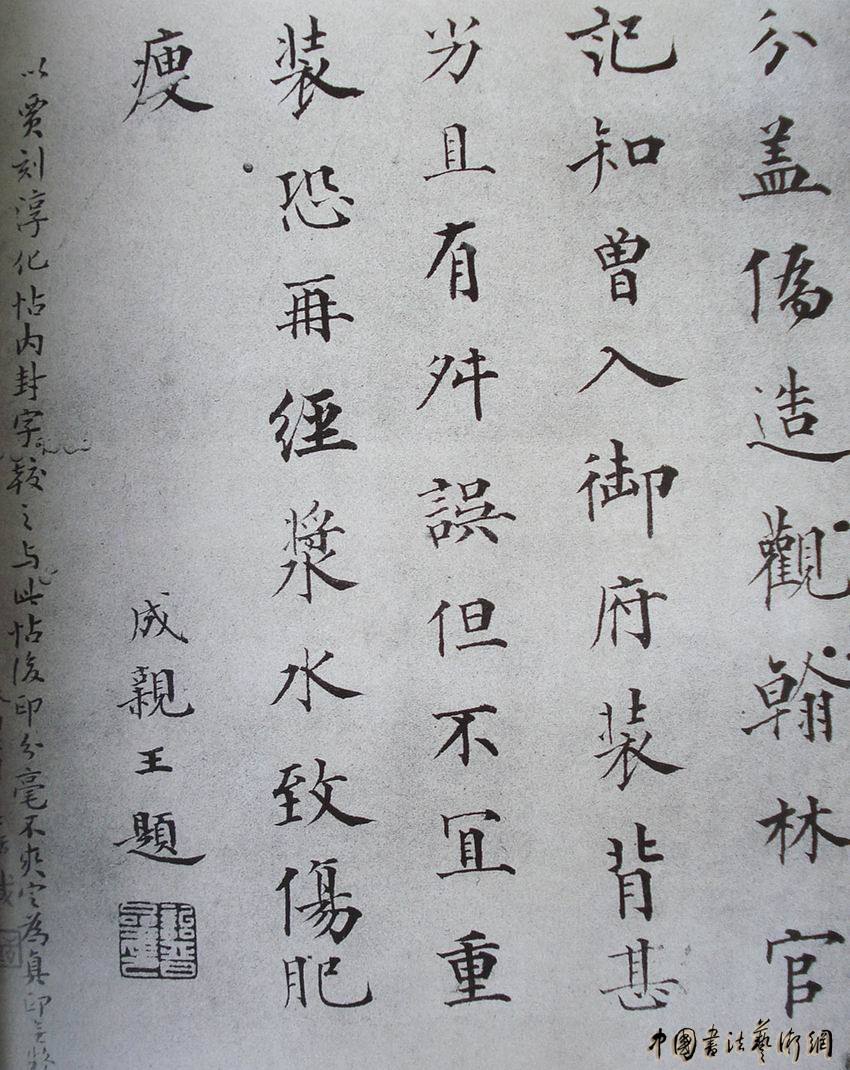 分盖僞造觀翰林官
記知曾入御府装背甚
劣且有舛誤但不宜重
装恐再經漿水致傷肥
瘦
成親王題
以賈刻淳化帖内封字較之与此帖後印分毫不爽定為真印無
中國書法藝術網